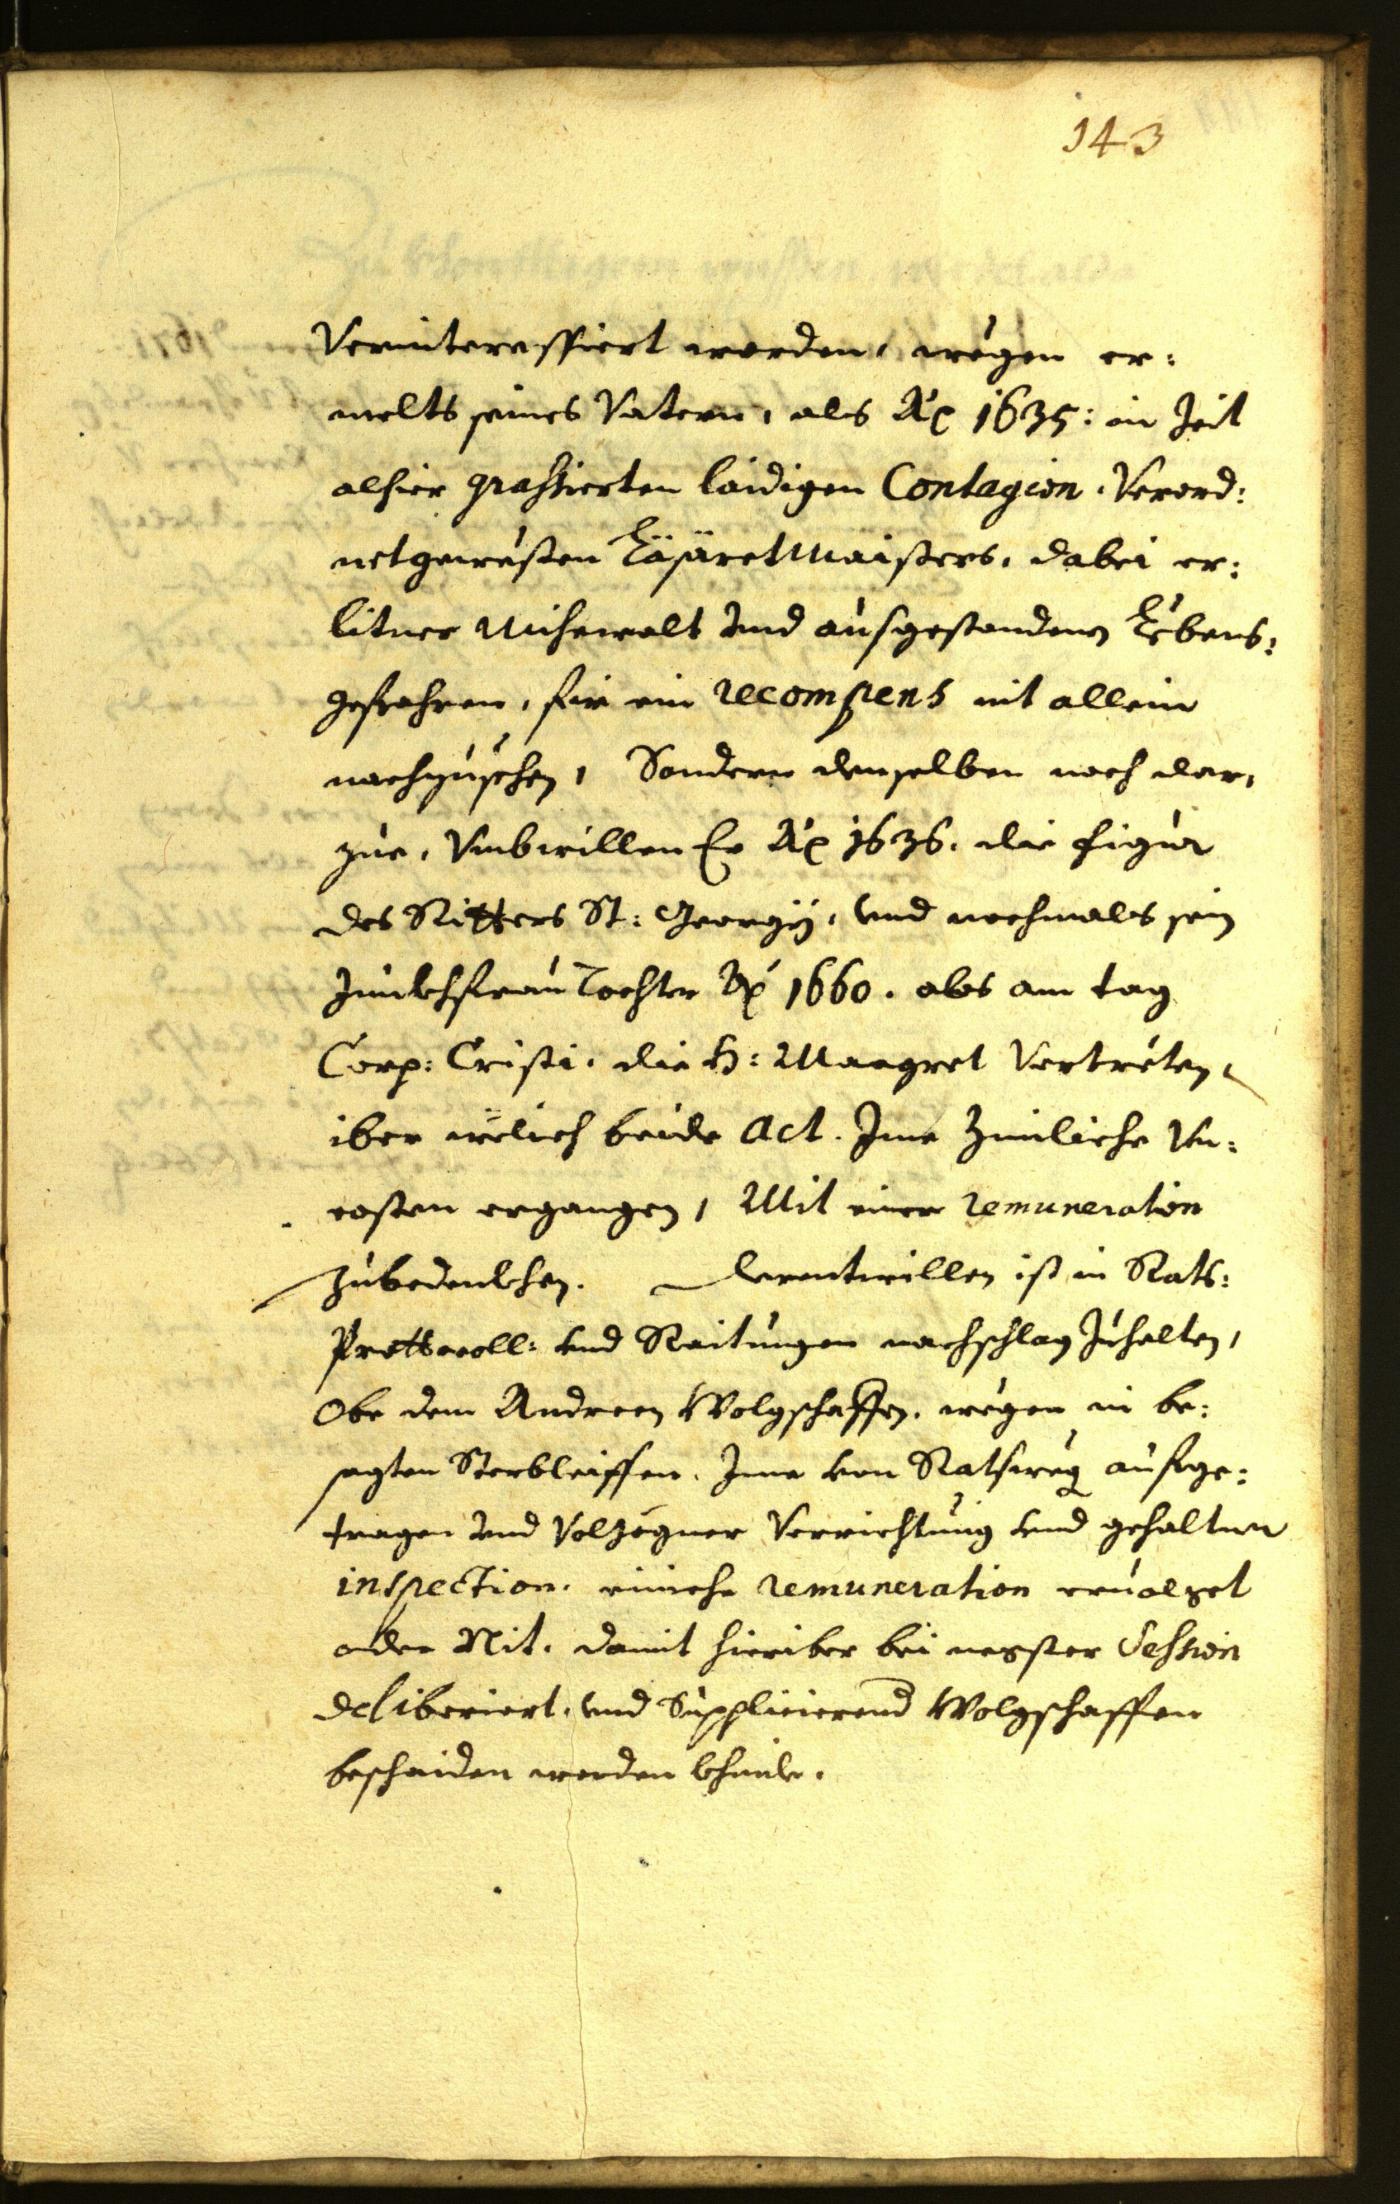 143
Verinteressiert worden, wegen er:
melts seines Vatern, als Aõ 1635: in Zeit
alhier grassierten laidigen Contagion. Verord:
netgewesten Läsäretmaisters, dabei er:
litner Mihewalt und ausgestandenen Lebens:
gefahren, fir ein recompens nit allein
nachzusehen, Sondern denselben noch dar,
zue, Umbwillen Er Aõ 1636. die figur
des Ritters St: Georgÿ, und nochmals sein
Junckhfrau Tochter Aõ 1660. als am tag
Corp: Cristi. die H: Margret Vertreten,
iber welich beide Act. Ime Zimliche Un:
costen ergangen, Mit einer remuneration
zubedenckhen. Derentwillen ist in Rats:
Prottocoll: und Raitungen nachschlag Zuhalten,
Obe dem Andreen Wolgschaffen. wegen in be:
sagten Sterbleiffen. Ime von Ratsweg aufge:
tragen und Volzogner Verrichtung und gehaltner
inspection. einiche remuneration ervolget
oder Nit. damit hieriber bei negster Session
deliberiert, und Supplicierend Wolgschaffen
beschaiden werden khinde.